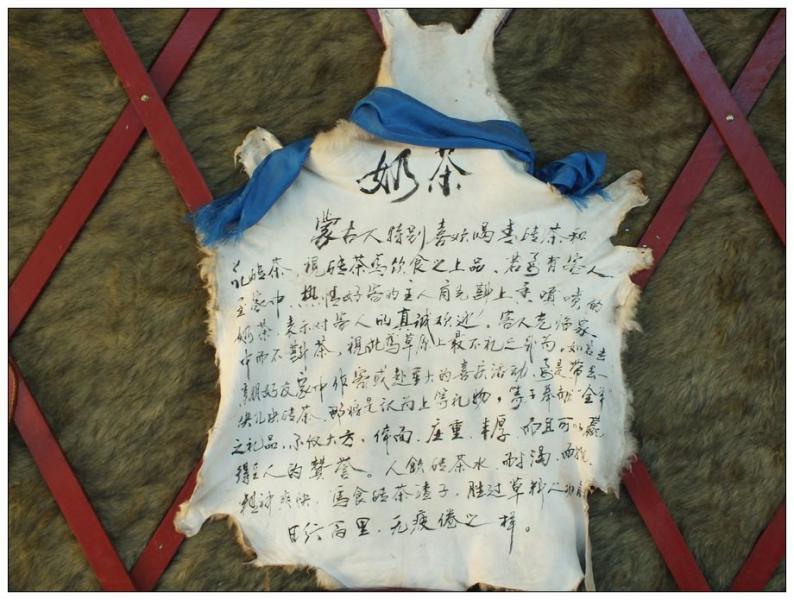 奶茶
蒙古人特别喜欢喝青砖茶和
孔砖茶，视砖茶为饮食之上品，若适有客人
至家中，热情好客的主人肯先斟上香喷喷的
奶茶，表示对客人的真诚欢迎，客人光临家
中而不斟茶，视此为草原上最不礼之行为，如若去
亲朋好友家中作客或赴重大的喜庆活动，是带去一
块儿块砖茶，那将是认为上等礼物，等于奉献"全羊"
之礼品，不仅大方，体面，庄重，丰厚，而且可以赢
得主人的赞誉。人饮砖茶水，耐渴，耐
精神爽快，马食砖茶渣子，胜过草料
日行百里，无疲倦之样。